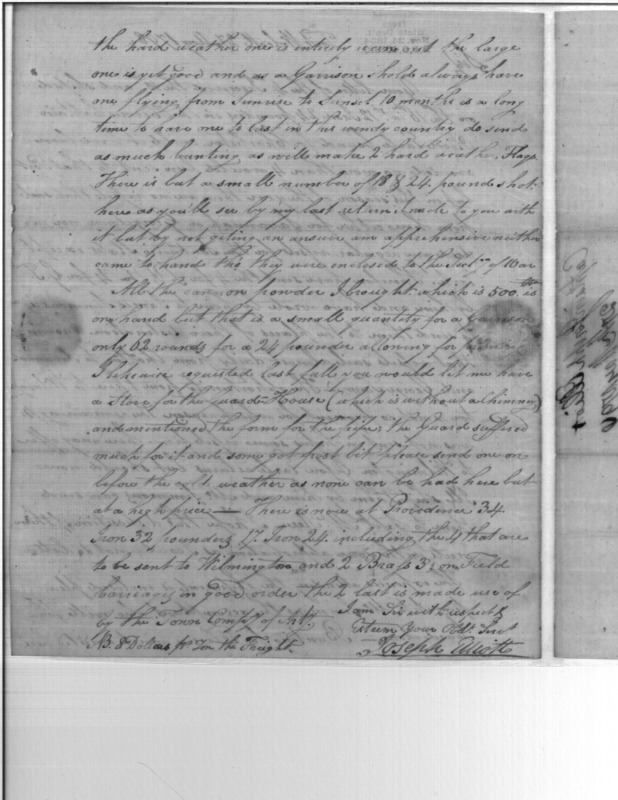 the hard weather one is intirely worn out the large
one is yet good and as a Garrison sholde always have
one flying from Sunrise to Sunset 10 months is a long
time to have one to last in this windy country do send
as much bunting as will make 2 hard weather Flags
There is but a small number of 18 & 24 pound shot
here as you'll see by my last return made to you with
it but by not geting an answer am apprehensive neither
came to hand tho' they were enclosed to the Secty of War
All the cannon powder I brought which is 500 lb is
on hand but that is a small quantity for a Garrison
only 62 rounds for a 24 pounder allowing for
I likewise requested last fall you would let me have
a Stove for the Guard-House (which is without a chimney)
and mentioned the form for the pipe, the Guard suffered
much for it and some got frost bit please send one on
before the cold weather as none can be had here but
at a high price — There is now at Providence 34
Iron 32 pounders 17 Iron 24. including the 4 that are
to be sent to Wilmington and 2 Brass 3s on Field
Carriages in good order the 2 last is made use of
by the Town Compy of Arty. I am Sir with respect &
Esteem Your Obt. Servt
NB. 8 Dollars pr Ton the Freight. Joseph Elliott